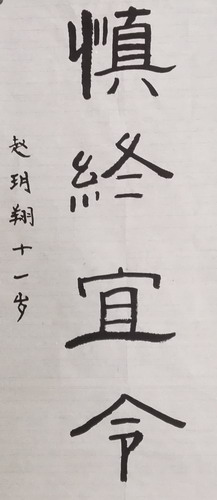 慎終宜令
赵玥翔十一岁